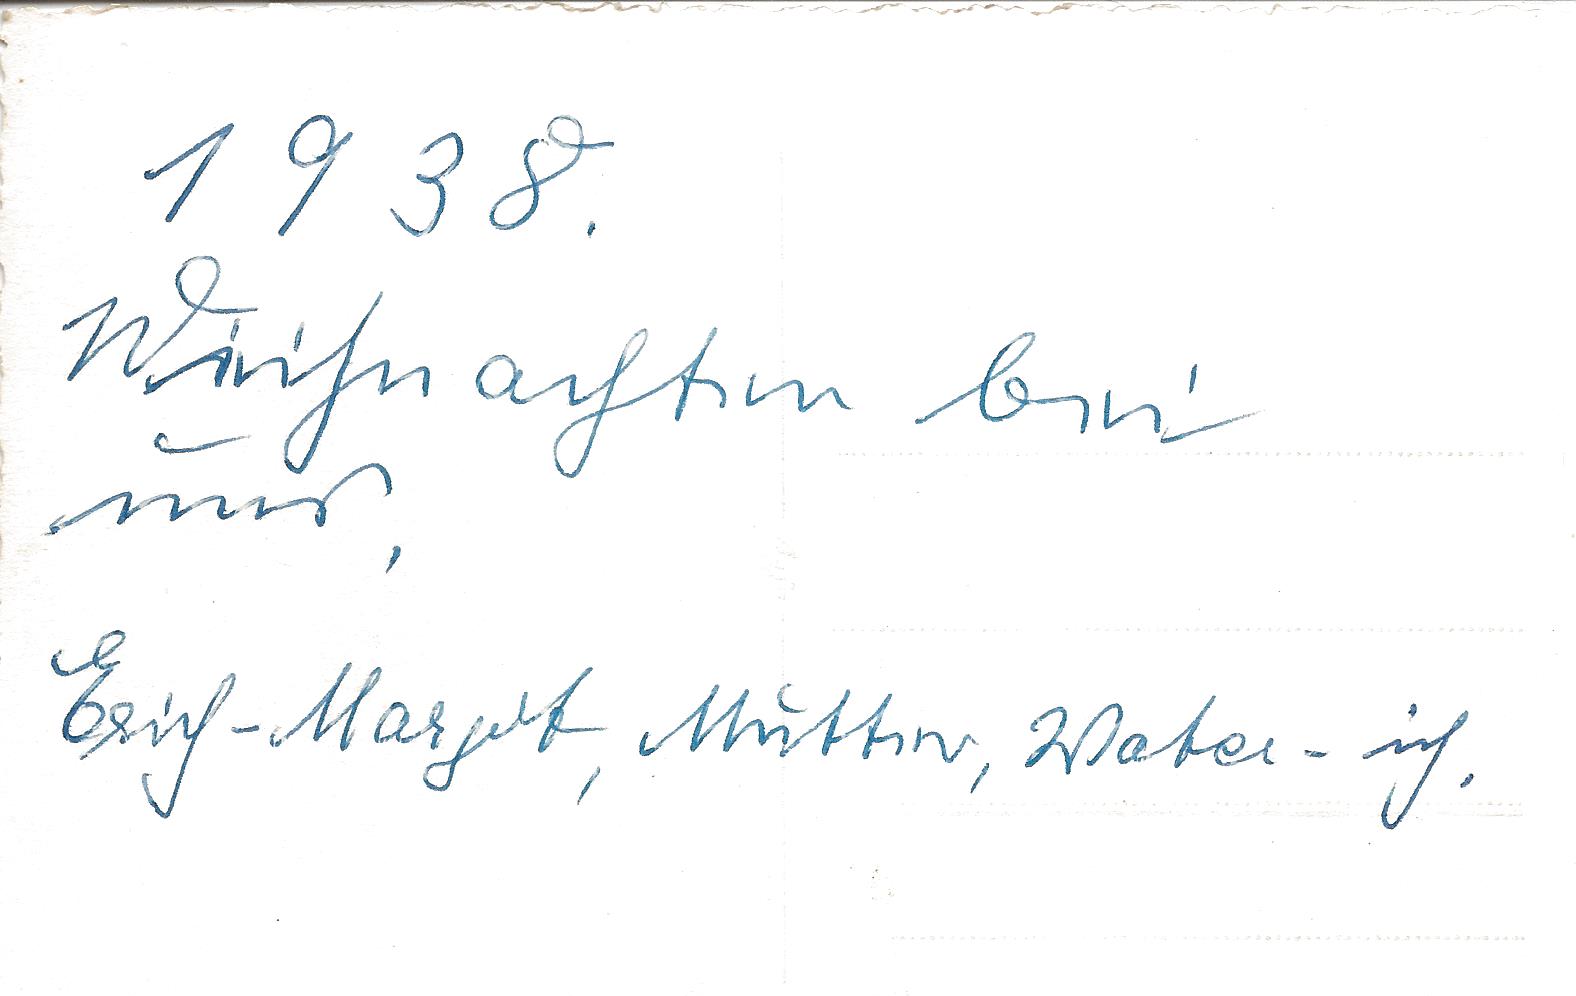 1938.
Weihnachten bei
uns,
Erich - Margit, Mutter, Vater - ich.